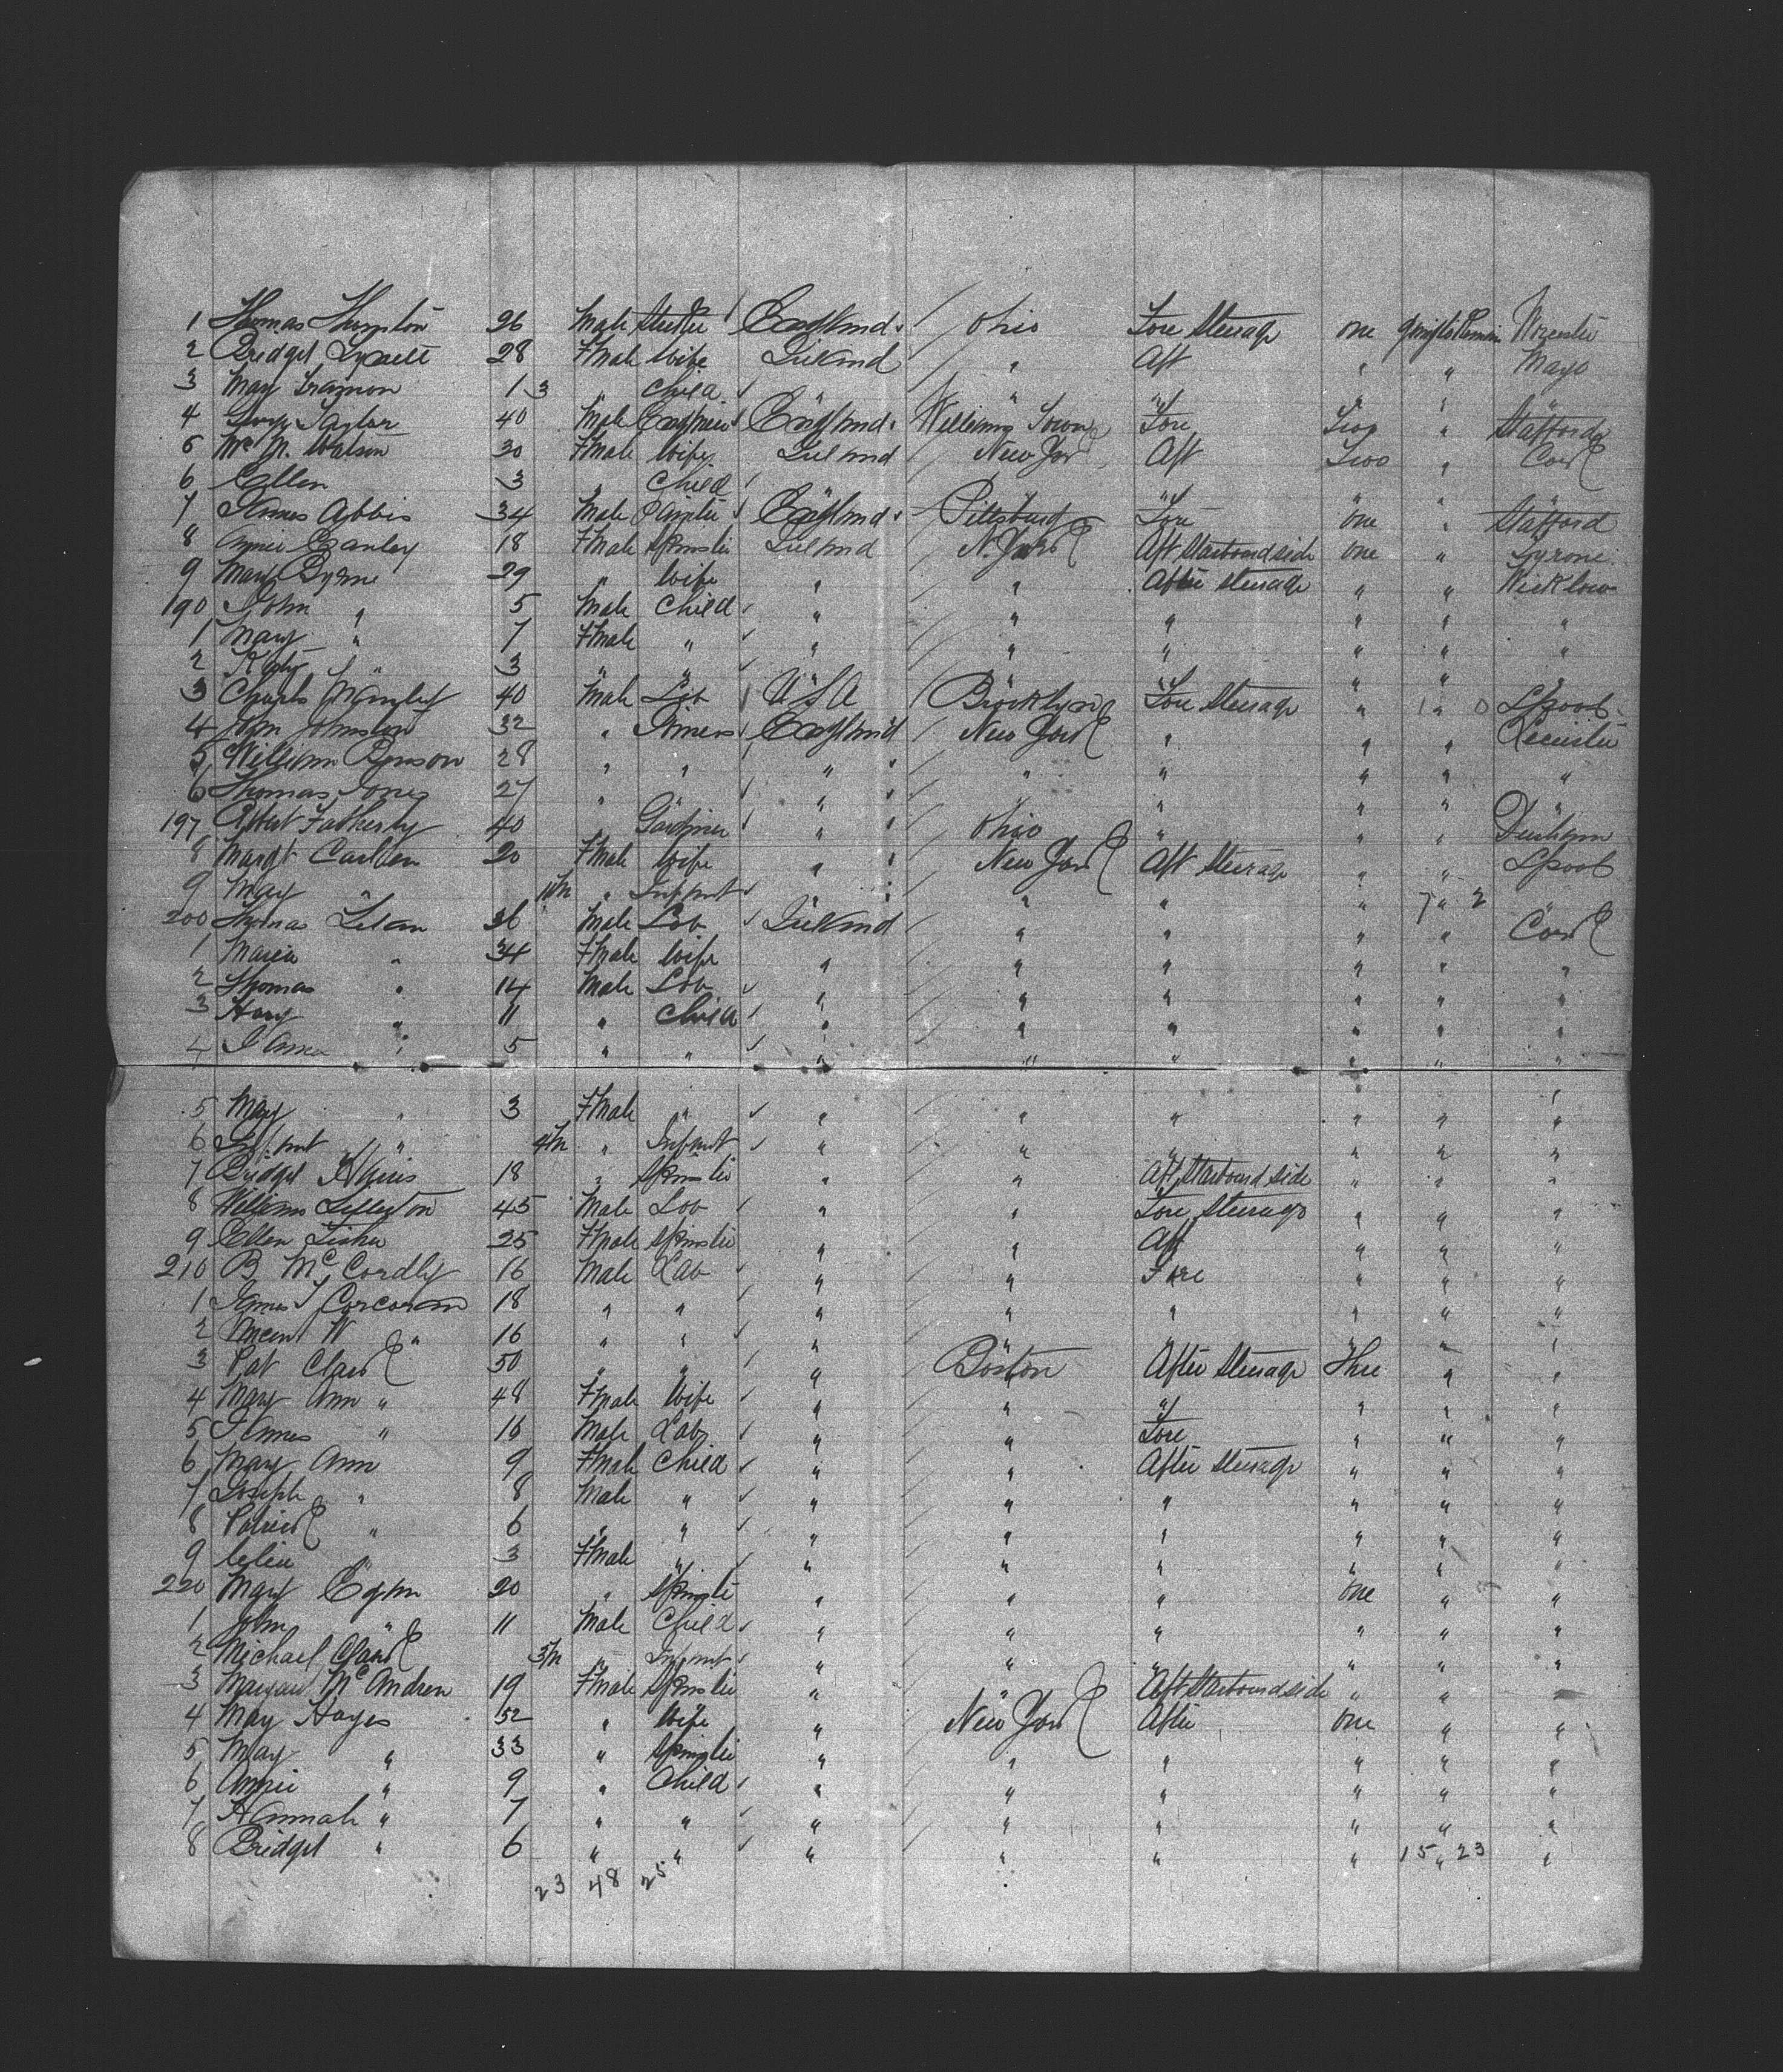 1 Thomas 26 Male England Ohio Fore Steerage one
2 Bridget 28 Fmale Wife Ireland " Aft " " Mayo
3 May 1 3 " Child " " " " " "
4 Taylor 40 Male England Fore Two " Stafford
5 Mc M. Watson 30 Fmale Wife Ireland New York Aft Two " Cork
6 Ellen 3 " Child " " " "
7 James Abbis 34 Male Painter England Pittsburg Fore one " Stafford
8 Annie 18 Fmale Spinster Ireland N. York Aft Starboard side one " Tyrone
9 Mary Byrne 29 " Wife " " After Steerage " " Wicklow
190 John " 5 Male Child " " " " " "
1 Mary " 7 Fmale " " " " " " "
2 Katy " 3 " " " " " " " "
3 Charles Manley 40 Male Lab USA Brooklyn Fore Steerage " 1 " 0 Lpool
4 John Johnston 32 " England New York " " " Leicester
5 William Benson 28 " " " " " " " "
6 Thomas Jones 27 " " " " " " " "
197 Fatherly 40 " Gardiner " Ohio " " " Durham
8 Margt 20 Fmale Wife " New York Aft Steerage " " Lpool
9 May " 11/m " Infant " " " " 7 " 2 "
200 Thomas 36 Male Lab Ireland " " " " Cork
1 Maria " 34 Fmale Wife " " " " " "
2 Thomas " 14 Male Lab " " " " " "
3 Harry " 11 " Child " " " " " "
4 James " 5 " " " " " " " "
5 May " 3 Fmale " " " " " " "
6 Infant " 4/m " Infant " " " " " "
7 Bridget 18 " Spinster " " Aft Starboard Side " " "
8 William 45 Male Lab " " Fore Steerage " " "
9 Ellen 25 Fmale Spinster " " Aft " " "
210 B McCordly 16 Male Lab " " Fore " " "
1 James J Corcoran 18 " " " " " " " "
2 Vincent W " 16 " " " " " " " "
3 Pat 50 " " " Boston After Steerage Thre " "
4 Mary Ann " 48 Fmale Wife " " " " " "
5 James " 16 Male Lab " " Fore " " "
6 Mary Ann 9 Fmale Child " " After Steerage " " "
7 Joseph " 8 Male " " " " " " "
8 Patrick " 6 " " " " " " " "
9 Celia " 3 Fmale " " " " " " "
220 Mary Egan 20 " Spinster " " " one " "
1 John " 11 Male Child " " " " " "
2 Michael 3/m " Infant " " " " " "
3 McAndrew 19 Fmale Spinster " " Aft Starboard side " " "
4 May Hayes 52 " Wife " New York After one " "
5 May " 33 " Spinster " " " " " "
6 Annie " 9 " Child " " " " " "
7 Hannah " 7 " " " " " " " "
8 Bridget " 6 " " " " " " 15 " 23 "
23 48 25